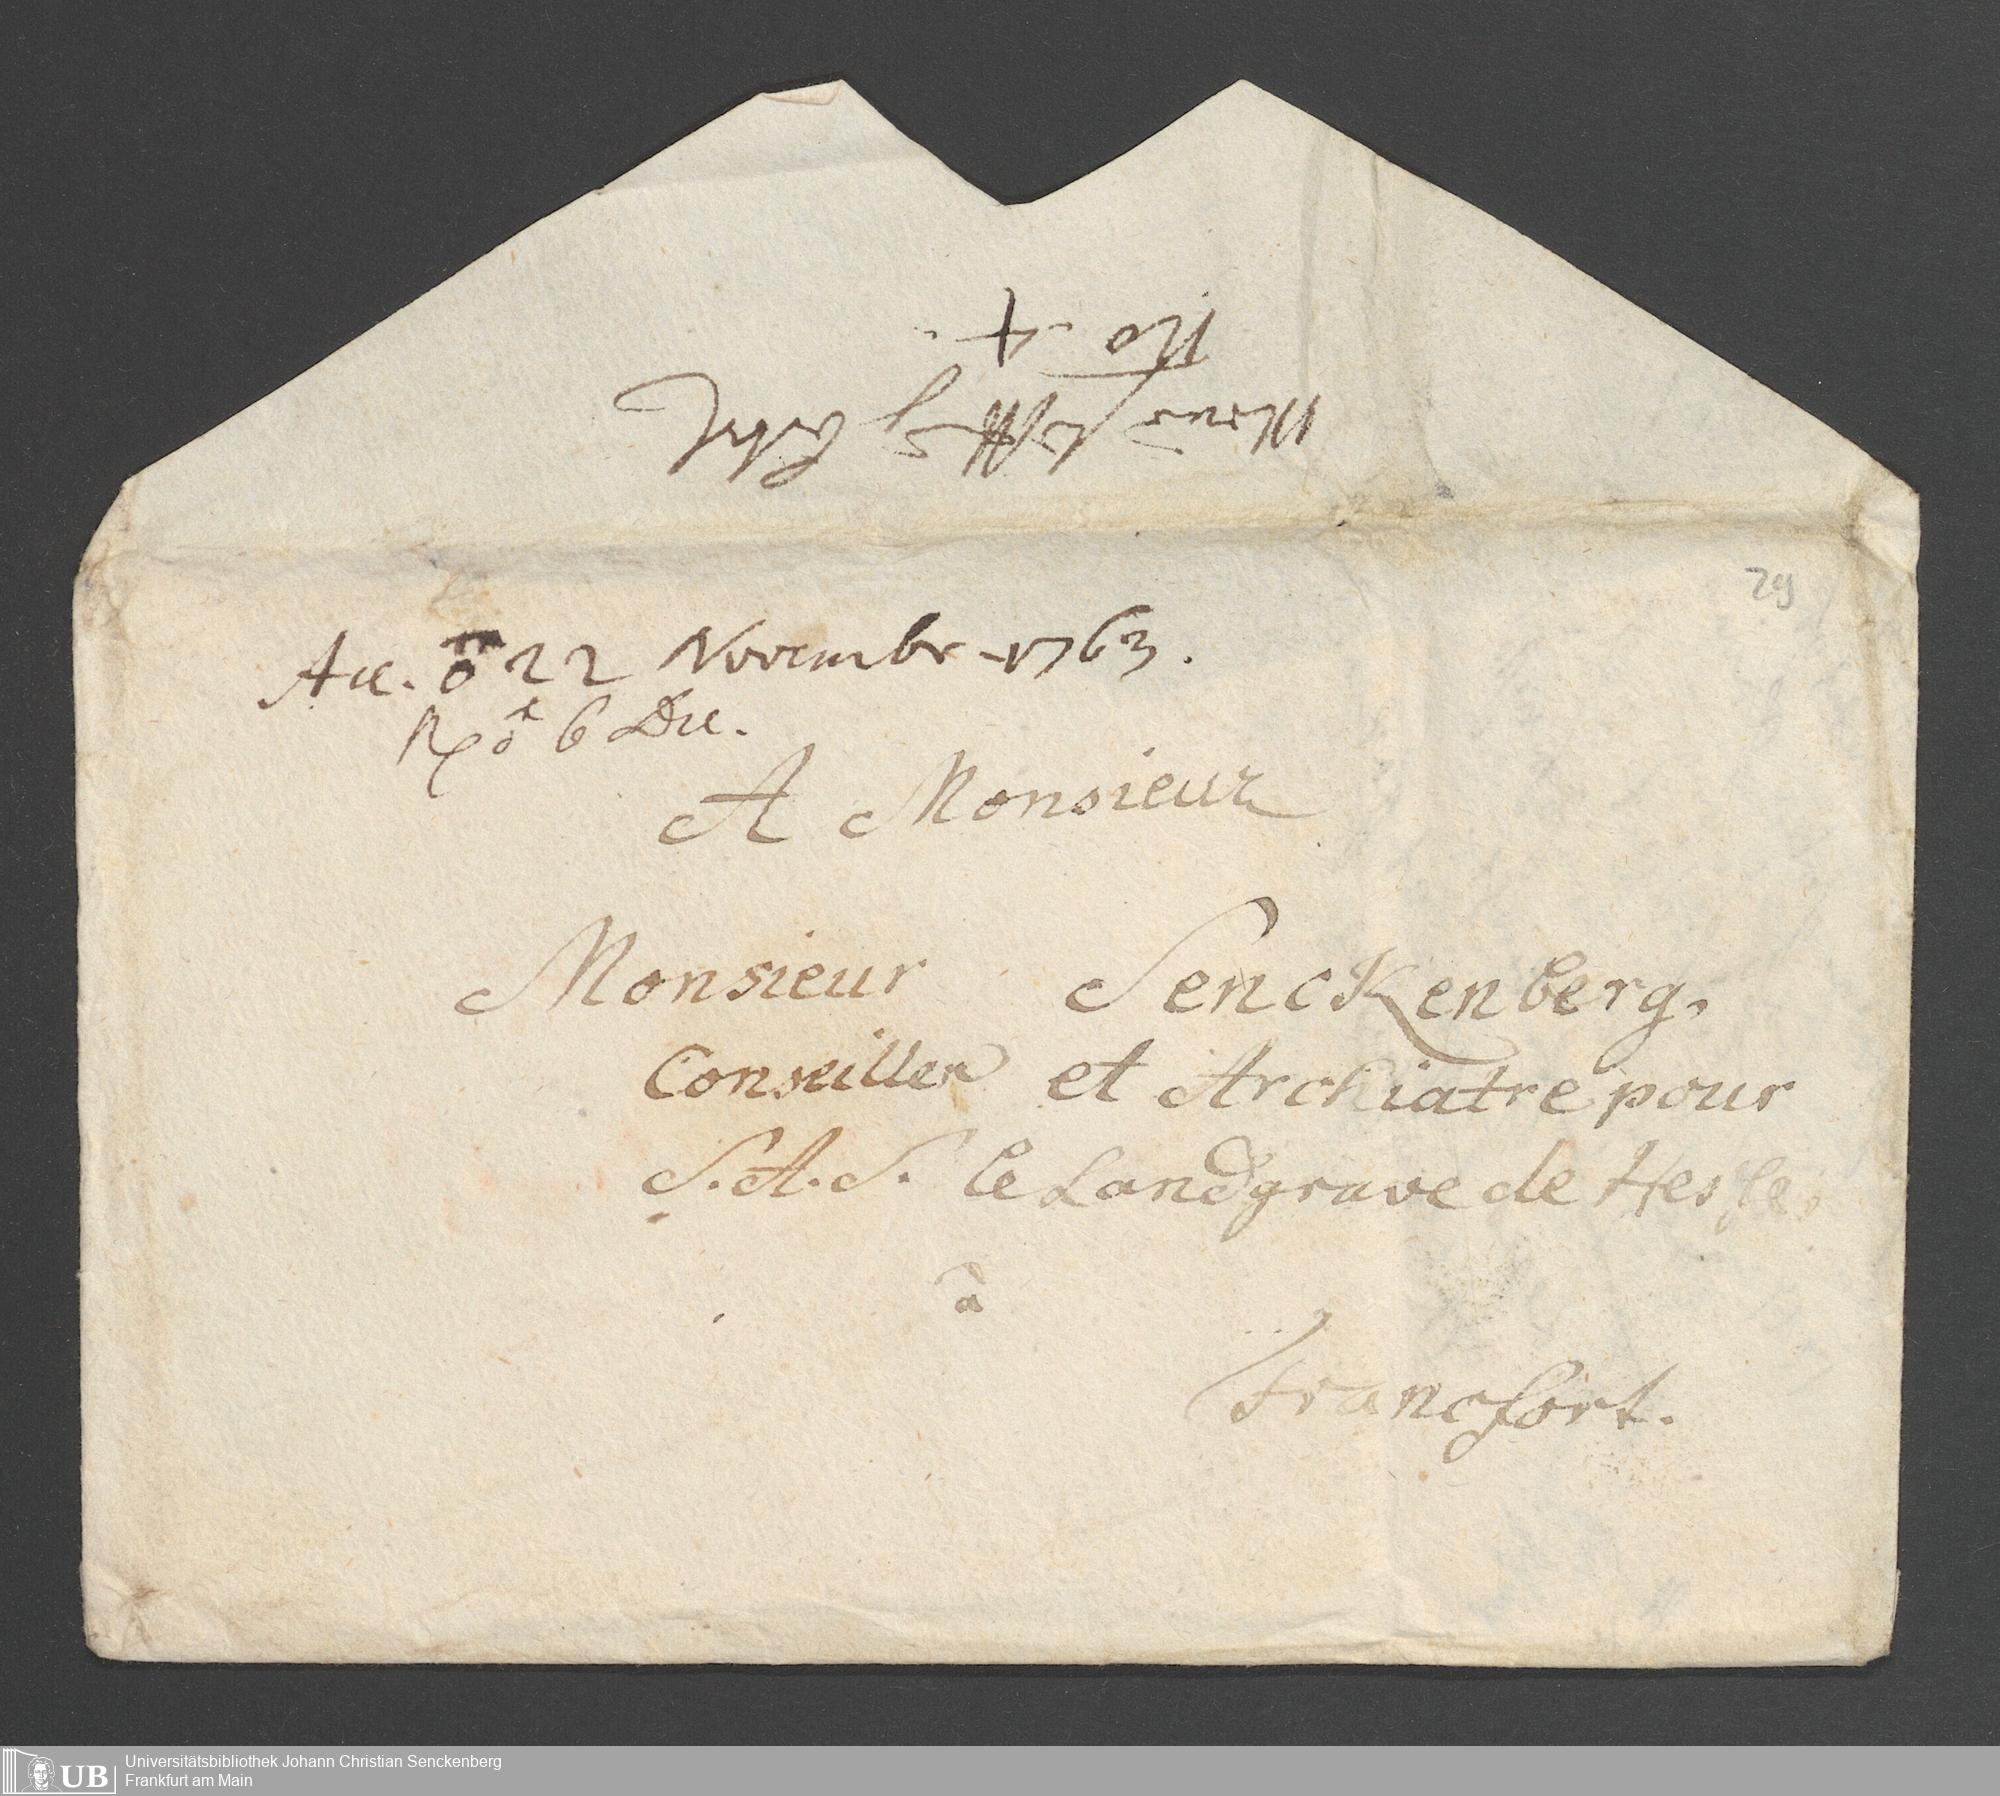 No 4.
29
Acc. 22 Novembr. 1763.
6 Dec.
A Monsieur
Monsieur Senckenberg,
Conseiller et Archiatre pour
S. A. S. le Landgrave de Hesse,
a
Francfort.
UB
Universitätsbibliothek Johann Christian Senckenberg
Frankfurt am Main